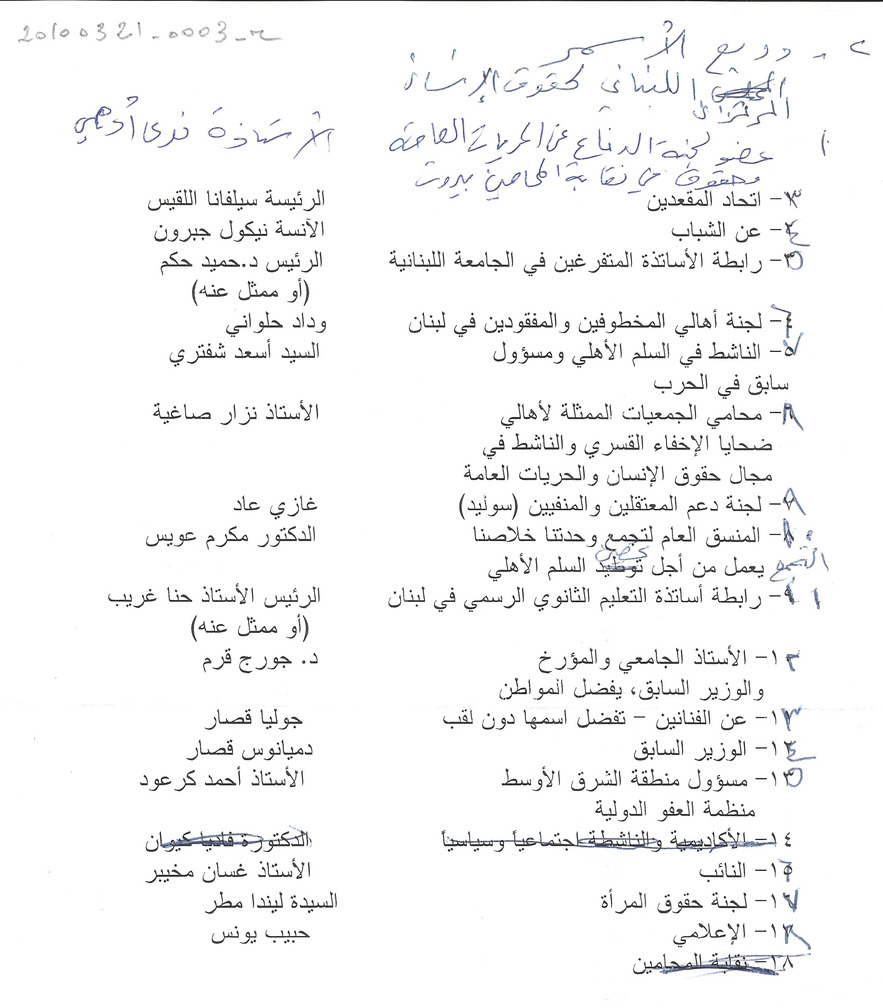 20100321-0003-2
٢- وديع الأسمر
المركز اللبناني لحقوق الإنسان
١ عضو لجنة الدفاع عن الحريات العامة الأستاذة ندى أدهمي
وحقوق في نقابة المحامين بيروت
٣- اتحاد المقعدين الرئيسة سيلفانا اللقيس
٤- عن الشباب الآنسة نيكول جبرون
٥- رابطة الأساتذة المتفرغين في الجامعة اللبنانية الرئيس د.حميد حكم
(أو ممثل عنه)
٦- لجنة أهالي المخطوفين والمفقودين في لبنان وداد حلواني
٧- الناشط في السلم الأهلي ومسؤول السيد أسعد شفتري
سابق في الحرب
٨- محامي الجمعيات الممثلة لأهالي الأستاذ نزار صاغية
ضحايا الإخفاء القسري والناشط في
مجال حقوق الإنسان والحريات العامة
- لجنة دعم المعتقلين والمنفيين (سوليد) غازي عاد
- المنسق العام لتجمع وحدتنا خلاصنا الدكتور مكرم عويس
التجمع يعمل من أجل توطيد السلم الأهلي
١١- رابطة أساتذة التعليم الثانوي الرسمي في لبنان الرئيس الأستاذ حنا غريب
(أو ممثل عنه)
١٢- الأستاذ الجامعي والمؤرخ د. جورج قرم
والوزير السابق، يفضل المواطن
١٣- عن الفنانين - تفضل اسمها دون لقب جوليا قصار
١٤- الوزير السابق دميانوس قصار
١٥- مسؤول منطقة الشرق الأوسط الأستاذ أحمد كرعود
منظمة العفو الدولية
١٤- الأكاديمية والناشطة اجتماعياً وسياسياً الدكتورة فاديا كيوان
١٦- النائب الأستاذ غسان مخيبر
١٧- لجنة حقوق المرأة السيدة ليندا مطر
١٨- الإعلامي حبيب يونس
١٨- نقابة المحامين